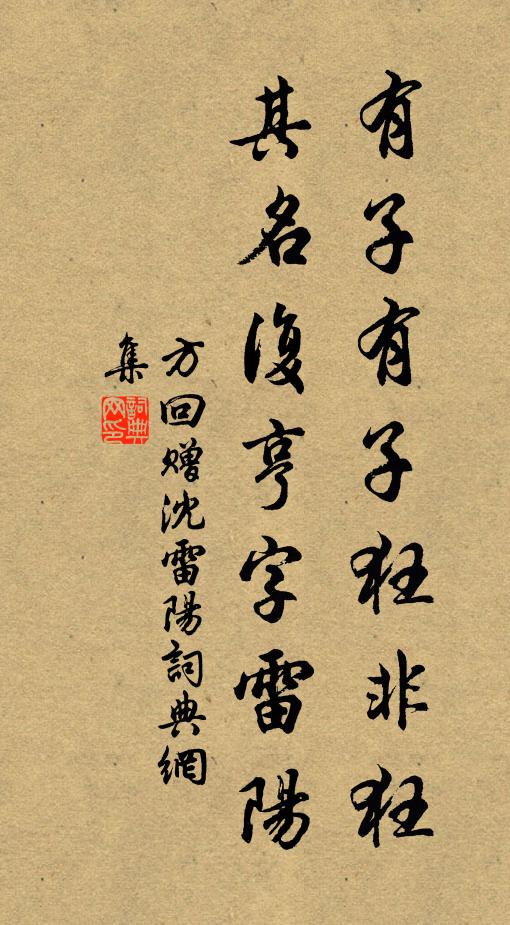 有子有子狂非狂
其名復亨字雷陽
方回赠沈雷陽詞典網
集
詞典网印